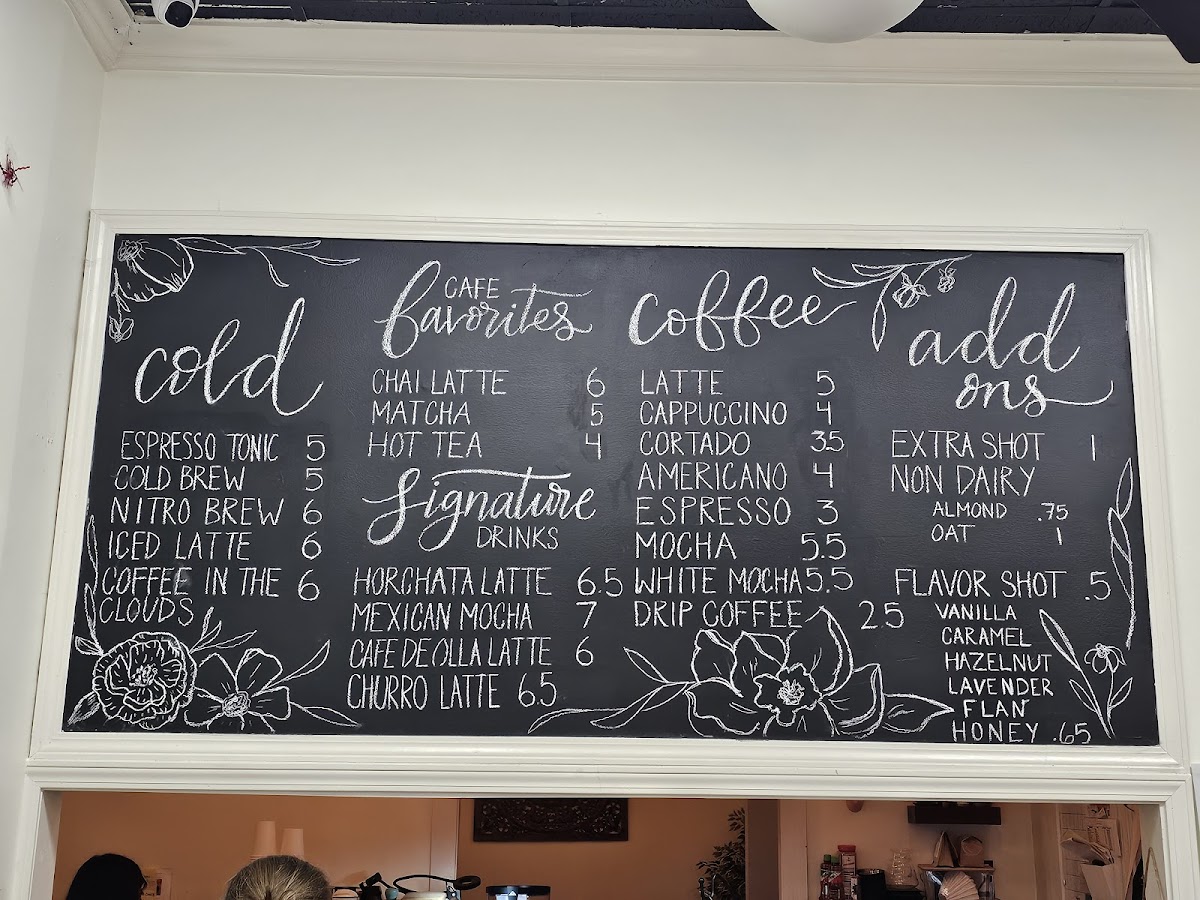 cold
ESPRESSO TONIC 5
COLD BREW 5
NITRO BREW 6
ICED LATTE 6
COFFEE IN THE 6
CLOUDS
CAFE
favorites
CHAI LATTE 6
MATCHA 5
HOT TEA 4
signature
DRINKS
HORCHATA LATTE 6.5
MEXICAN MOCHA 7
CAFE DE OLLA LATTE 6
CHURRO LATTE 6.5
coffee
LATTE 5
CAPPUCCINO 4
CORTADO 3.5
AMERICANO 4
ESPRESSO 3
MOCHA 5.5
WHITE MOCHA 5.5
DRIP COFFEE 2.5
add
ons
EXTRA SHOT 1
NON DAIRY
ALMOND .75
OAT 1
FLAVOR SHOT .5
VANILLA
CARAMEL
HAZELNUT
LAVENDER
FLAN
HONEY .65